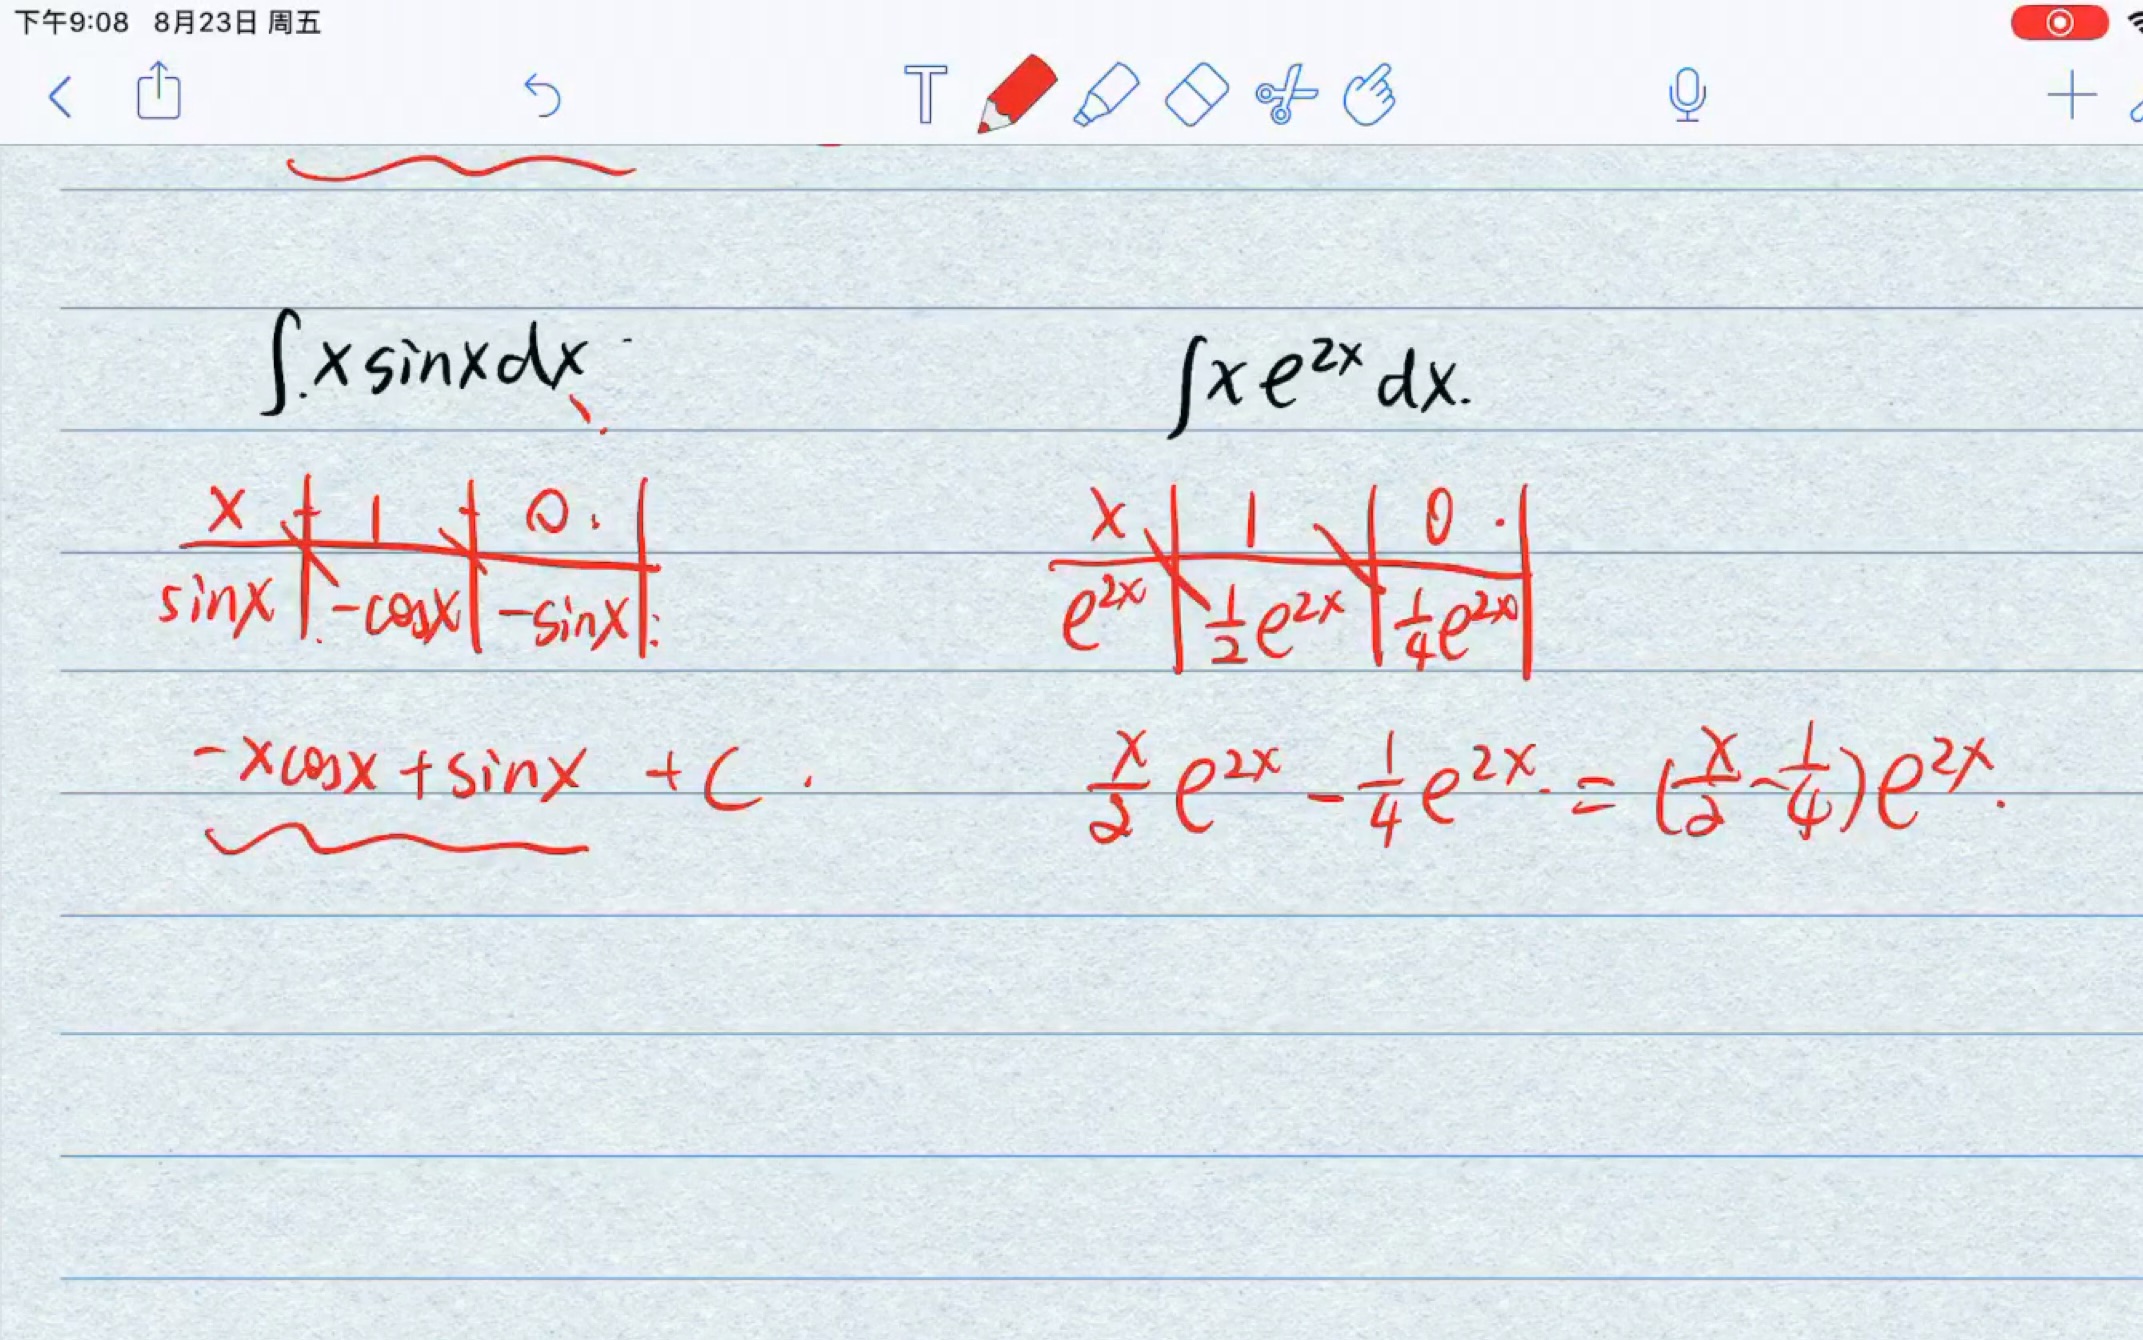 下午9:08 8月23日 周五
T
∫xsinxdx
x 1 0
sinx -cosx -sinx
-xcosx+sinx +C.
∫xe^{2x}dx.
x 1 0
e^{2x} 1/2e^{2x} 1/4e^{2x}
x/2e^{2x} - 1/4e^{2x} = (x/2-1/4)e^{2x}.